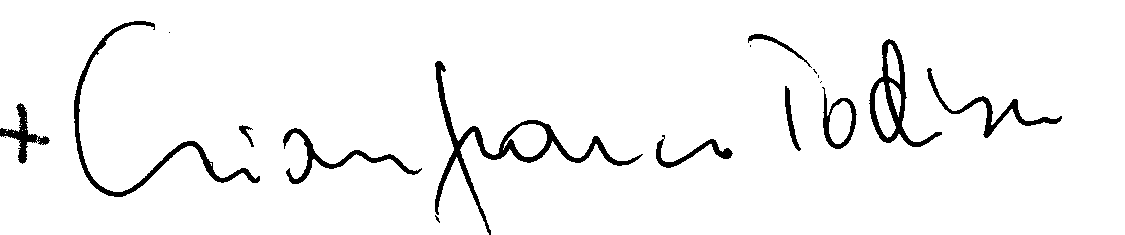 + Gianfranco Todisco